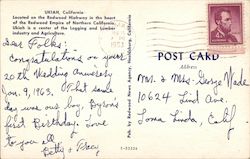 UKIAH, California
Located on the Redwood Highway in the heart
of the Redwood Empire of Northern California.
Ukiah is a center of the Logging and Lumber
industry and Agriculture.
Dear Folks:
Congratulations on your
20th Wedding Anniversary
Jan. 9, 1963. That same
day was our boy, Byron's
first Birthday. Love
to you all
Betty +
POST CARD
Address
Mr. & Mrs. George Wade
10624 Lind Ave.
Loma Linda, Calif.
Pub. by Redwood News Agency, Healdsburg, California